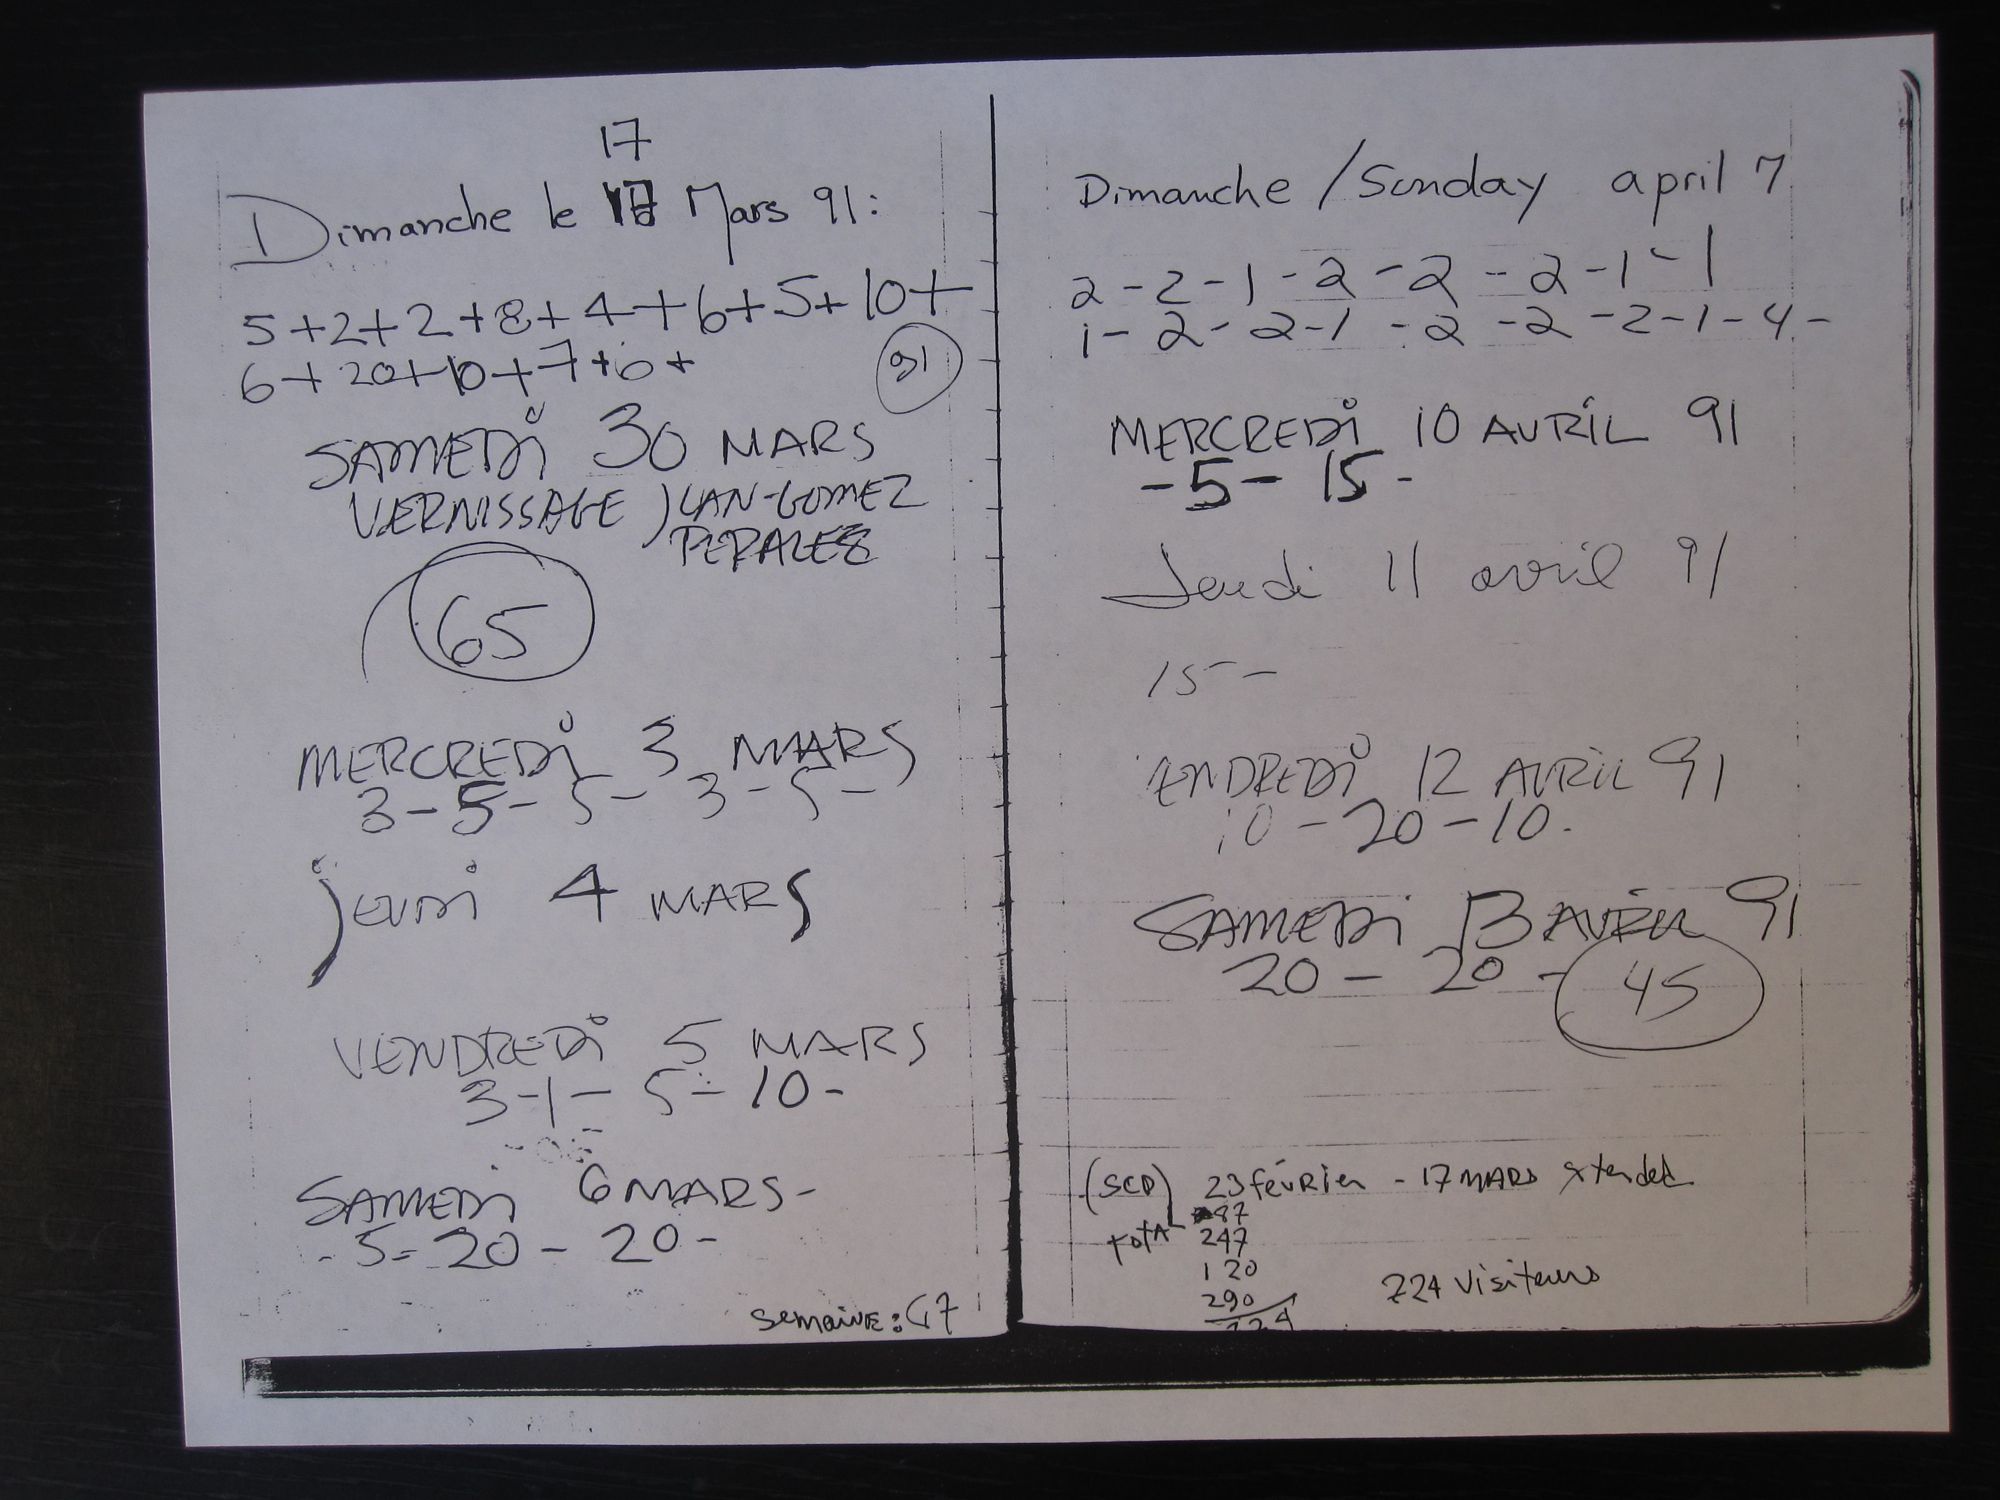 17
Dimanche le 17 Mars 91:
5+2+2+8+4+6+5+10+
6+20+10+7+6+
91
SAMEDi 30 MARS
VERNISSAGE JUAN-GOMEZ
PERALES
65
MERCREDi 3 MARS
3-5-5-3-5-
jeudi 4 MARS
VENDREDi 5 MARS
3-1-5-10-
SAMEDi 6 MARS-
-5-20-20-
semaine:
Dimanche / Sunday april 7
2-2-1-2-2-2-1-1
1-2-2-1-2-2-2-1-4-
MERCREDi 10 AVRiL 91
-5-15-
Jeudi 11 avril 91
15-
ENDREDi 12 AVRiL 91
10-20-10.
SAMEDi 13 AVRiL 91
20-20-
45
(SCD) 23 février - 17 MARS xtended
87
total 247
120
290
724 visiteurs